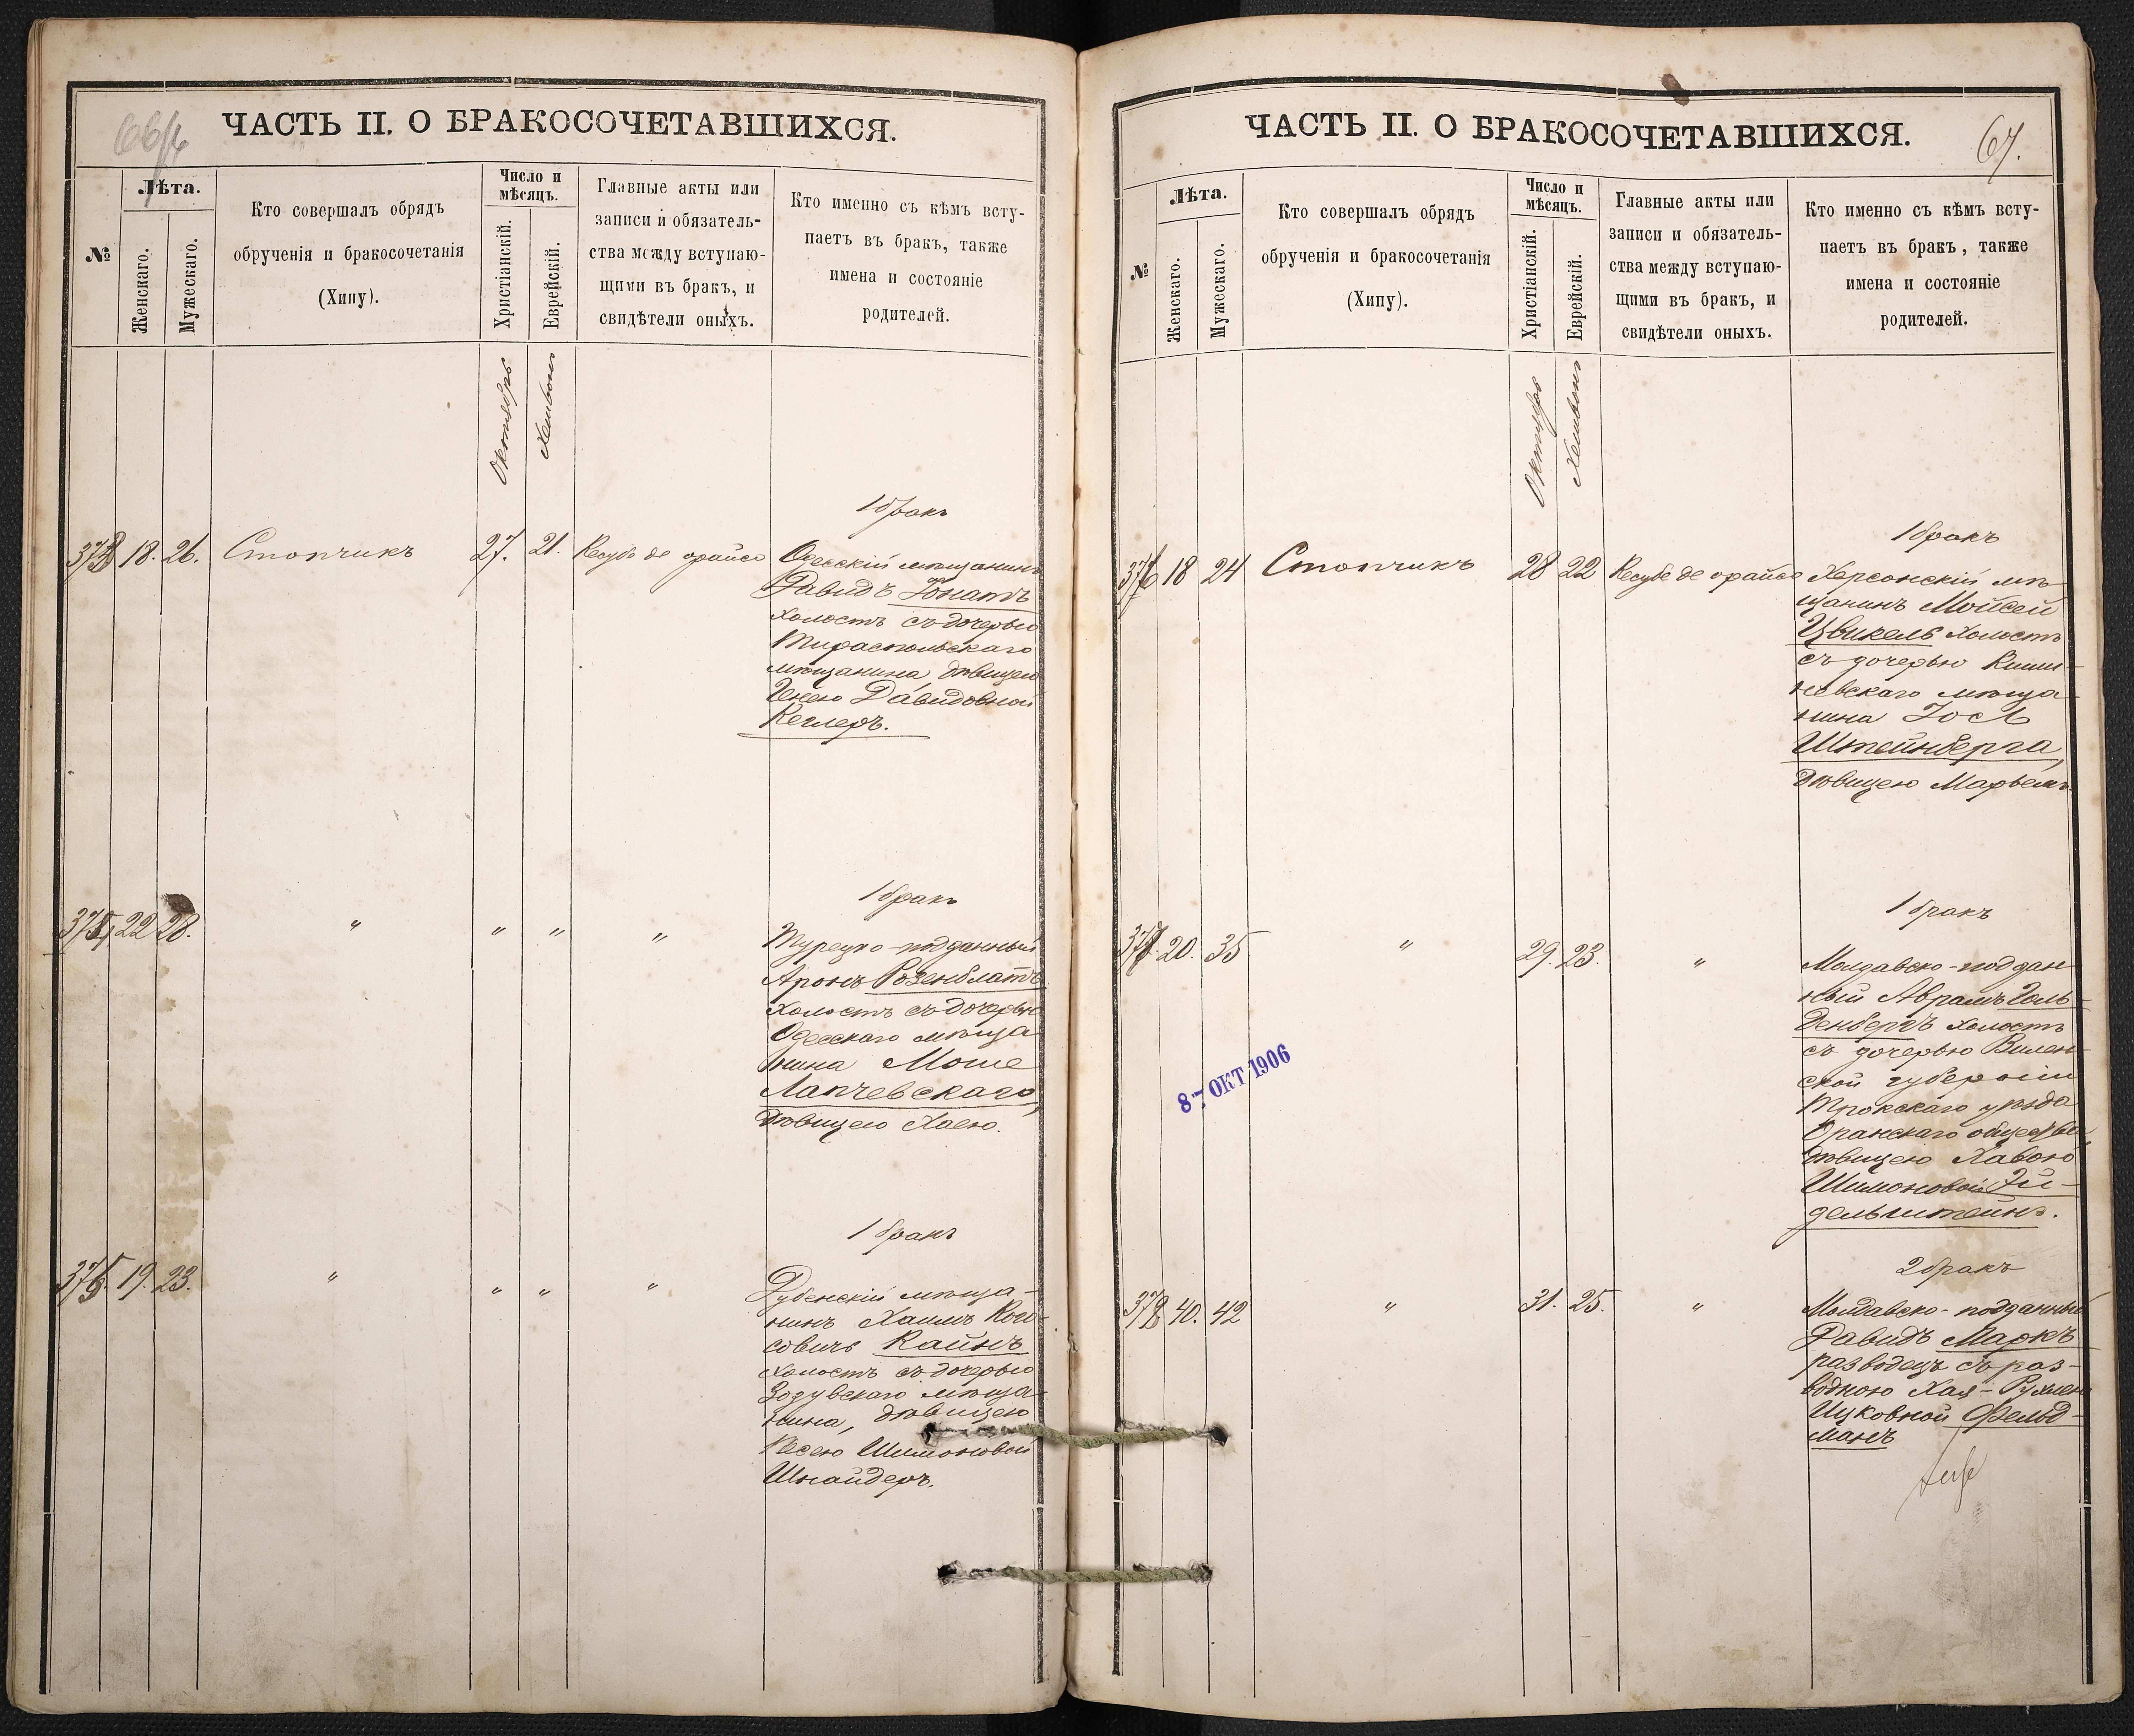 ЧАСТЬ II. О БРАКОСОЧЕТАВШИХСЯ.
№
Лѣта.
Женскаго.
Мужескаго.
Кто совершалъ обрядъ
обрученія и бракосочетанія
(Хипу).
Число и
мѣсяцъ.
Христіанскій.
Еврейскій.
Главные акты или
записи и обязатель-
ства между вступаю-
щими въ бракъ, и
свидѣтели оныхъ.
Кто именно съ кѣмъ всту-
паетъ въ бракъ, также
имена и состояніе
родителей.
Октябрь
Хешвонъ
1 бракъ
373 18. 26. Стопчикъ 27. 21. Кесубе де орайсе
Одесскій мѣщанинъ
Давидъ Гонатъ
холостъ съ дочерью
Тираспольскаго
мѣщанина, дѣвицею
Генею Давидовной
Кеглеръ.
1 бракъ
374 22 28. " " " "
Турецко-подданный
Аронъ Розенблатъ
холостъ съ дочерью
Одесскаго мѣща
нина Моше
Лапчевскаго,
дѣвицею Хаею.
1 бракъ
375. 19. 23. " " " "
Дубенскій мѣща-
нинъ Хаимъ
совичъ Кайнъ
холостъ съ дочерью
мѣща-
нина, дѣвицею
Песею Шимоновой
Шнайдеръ.
ЧАСТЬ II. О БРАКОСОЧЕТАВШИХСЯ.
67.
№
Лѣта.
Женскаго.
Мужескаго.
Кто совершалъ обрядъ
обрученія и бракосочетанія
(Хипу).
Число и
мѣсяцъ.
Христіанскій.
Еврейскій.
Главные акты или
записи и обязатель-
ства между вступаю-
щими въ бракъ, и
свидѣтели оныхъ.
Кто именно съ кѣмъ всту-
паетъ въ бракъ, также
имена и состояніе
родителей.
Октябрь
Хешвонъ
1 бракъ
376 18 24 Стопчикъ 28 22 Кесубе де орайсе
Херсонскій мѣ-
щанинъ Мойсей
Цвикель холостъ
съ дочерью Киши-
невскаго мѣща-
нина Іосл
Штейнберга,
дѣвицею Марьемъ
1 бракъ
377. 20. 35 " 29. 23. "
Молдавско-поддан-
ный Аврамъ Голь-
денбергъ холостъ
съ дочерью Вилен-
ской губерніи
Трокскаго уѣзда
Оранскаго общества,
дѣвицею Хавою
Шимоновой Эй-
дельштейнъ.
8- ОКТ 1906
2 бракъ
378 40. 42 " 31. 25. "
Молдавско-подданный
Давидъ Маркъ
разводецъ съ раз-
водною Хая-Рухлею
Ицковной Фельд-
манъ